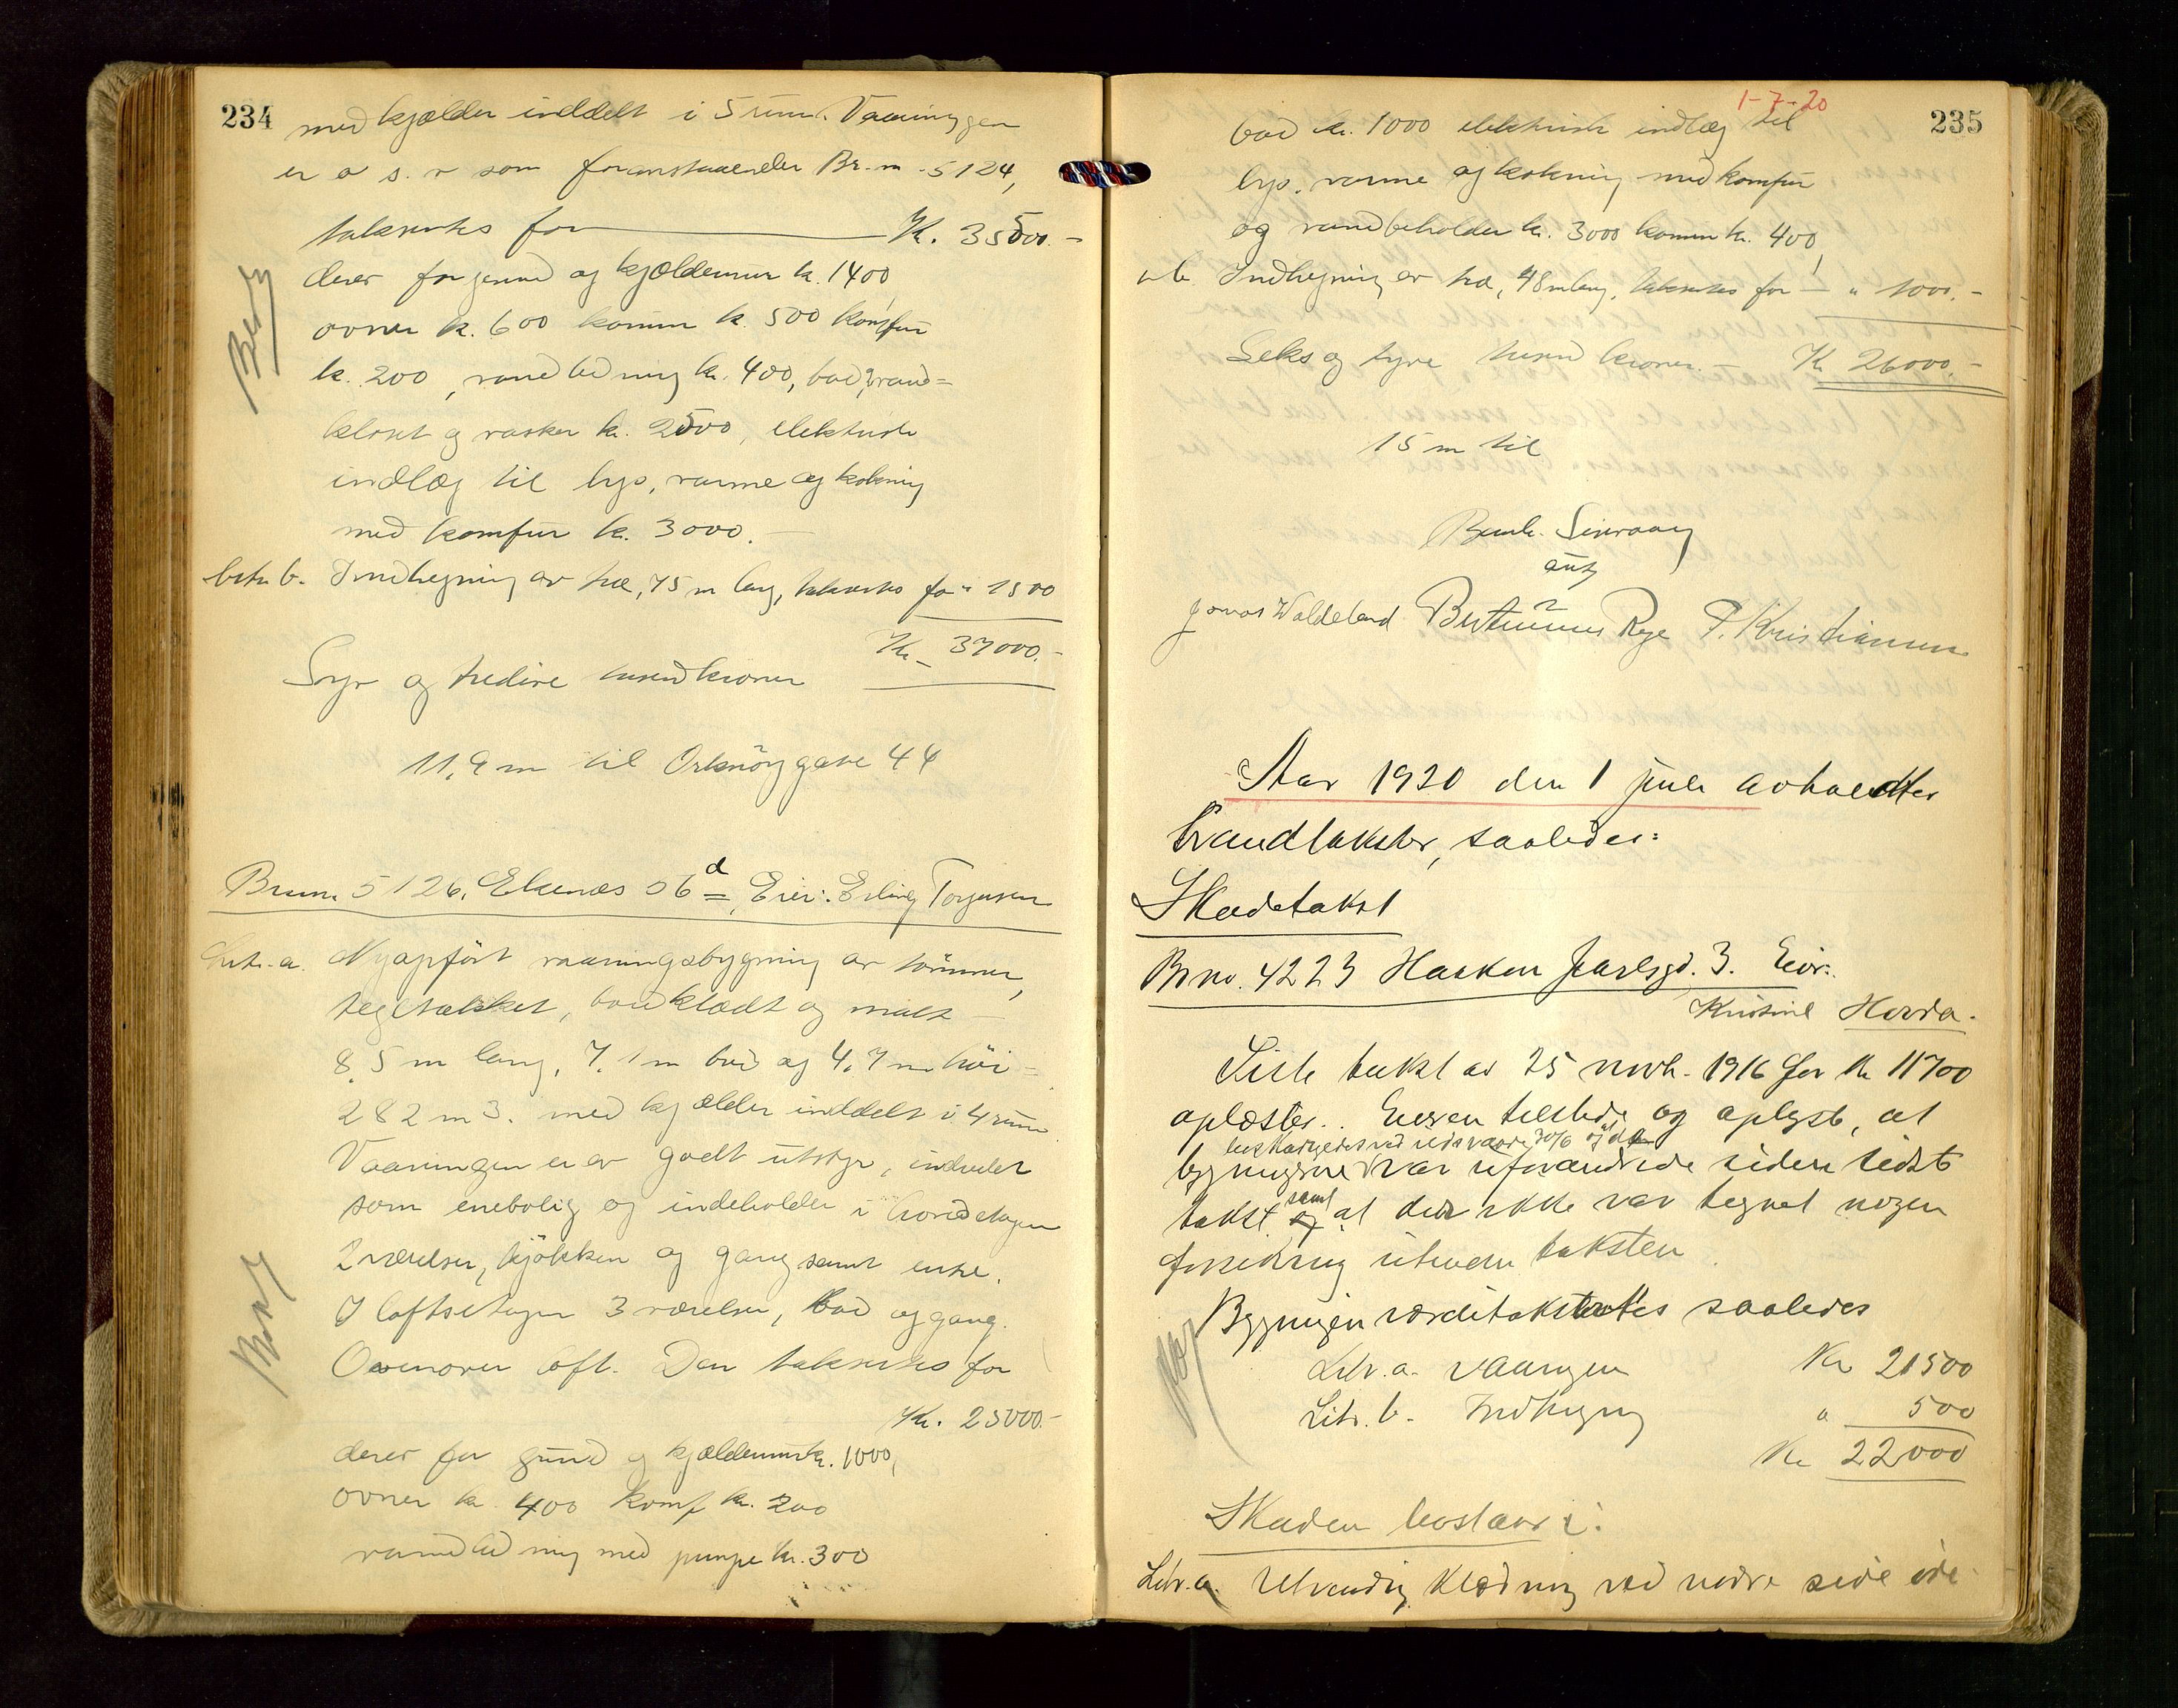 234
med kjælder inddelt i 5 rum. Vaaningen
er o s. v som foranstaaende Br. nr. 5124,
takseres for Kr. 35500.-
derav for grund og kjældermur kr. 1400,
ovner kr. 600 komm kr. 500 komfur
kr. 200, vandledning kr. 400, bad, vand=
kloset og vasker kr. 2500, elektrisk
indlæg til lys, varme og kokning
med komfur kr. 3000.-
Berg
Litr. b. Indhegning av træ, 75 m lang, takseres for " 1500
Kr. 37000.-
Syv og tredive tusend kroner
11,9 m til Orknöygate 44
Br. nr. 5126, Ekenæs 56 d, Eier: Erling Torgersen
Litr. a. Nyopfört vaaningsbygning av tömmer,
tegltækket, bordklædt og malt -
8,5 m lang, 7,1 m bred og 4,7 m höi =
282 m3. med kjælder inddelt i 4 rum.
Vaaningen er av godt utstyr, indredet
som enebolig og indeholder i hovedetagen
2 værelser, kjökken og gang samt entre.
I loftsetagen 3 værelser, bad og gang.
Ovenover loft. Den takseres for
Kr. 25000.-
derav for grund og kjældermur kr. 1000,
ovner kr. 400 komf kr. 200
vandledning med pumpe kr. 300
Berg
1-7-20
235
bad kr. 1000 elektrisk indlæg til
lys, varme og kokning med komfur
og vandbeholder kr. 3000 komm kr. 400,
" b. Indhegning av træ, 48 m lang, takseres for - " 1000.-
Seks og tyve tusend kroner. - Kr 26000.-
15 m til
Jonas Waldeland Bertinius Rege P. Kristiansen
Aar 1920 den 1 juli avholdtes
brandtakster, saaledes:
Skadetakst
Br no. 4223 Haakon Jarlsgd. 3. Eier:
Kristine Hovda.
Siste takst av 25 novb. 1916 for Kr 11700
oplæstes. Eieren tilstede og oplyste, at
bygningerne var uforandrede siden sidste
takst samt at der ikke var tegnet nogen
forsikring utenom taksten
Bygningen værditakstertes saaledes
Litr. a. vaaningen Kr 21500
Litr. b. Indhegning " 500
Kr 22000
Skaden bestaar i:
Litr. a. Utvendig klædning ved nedre side öde-